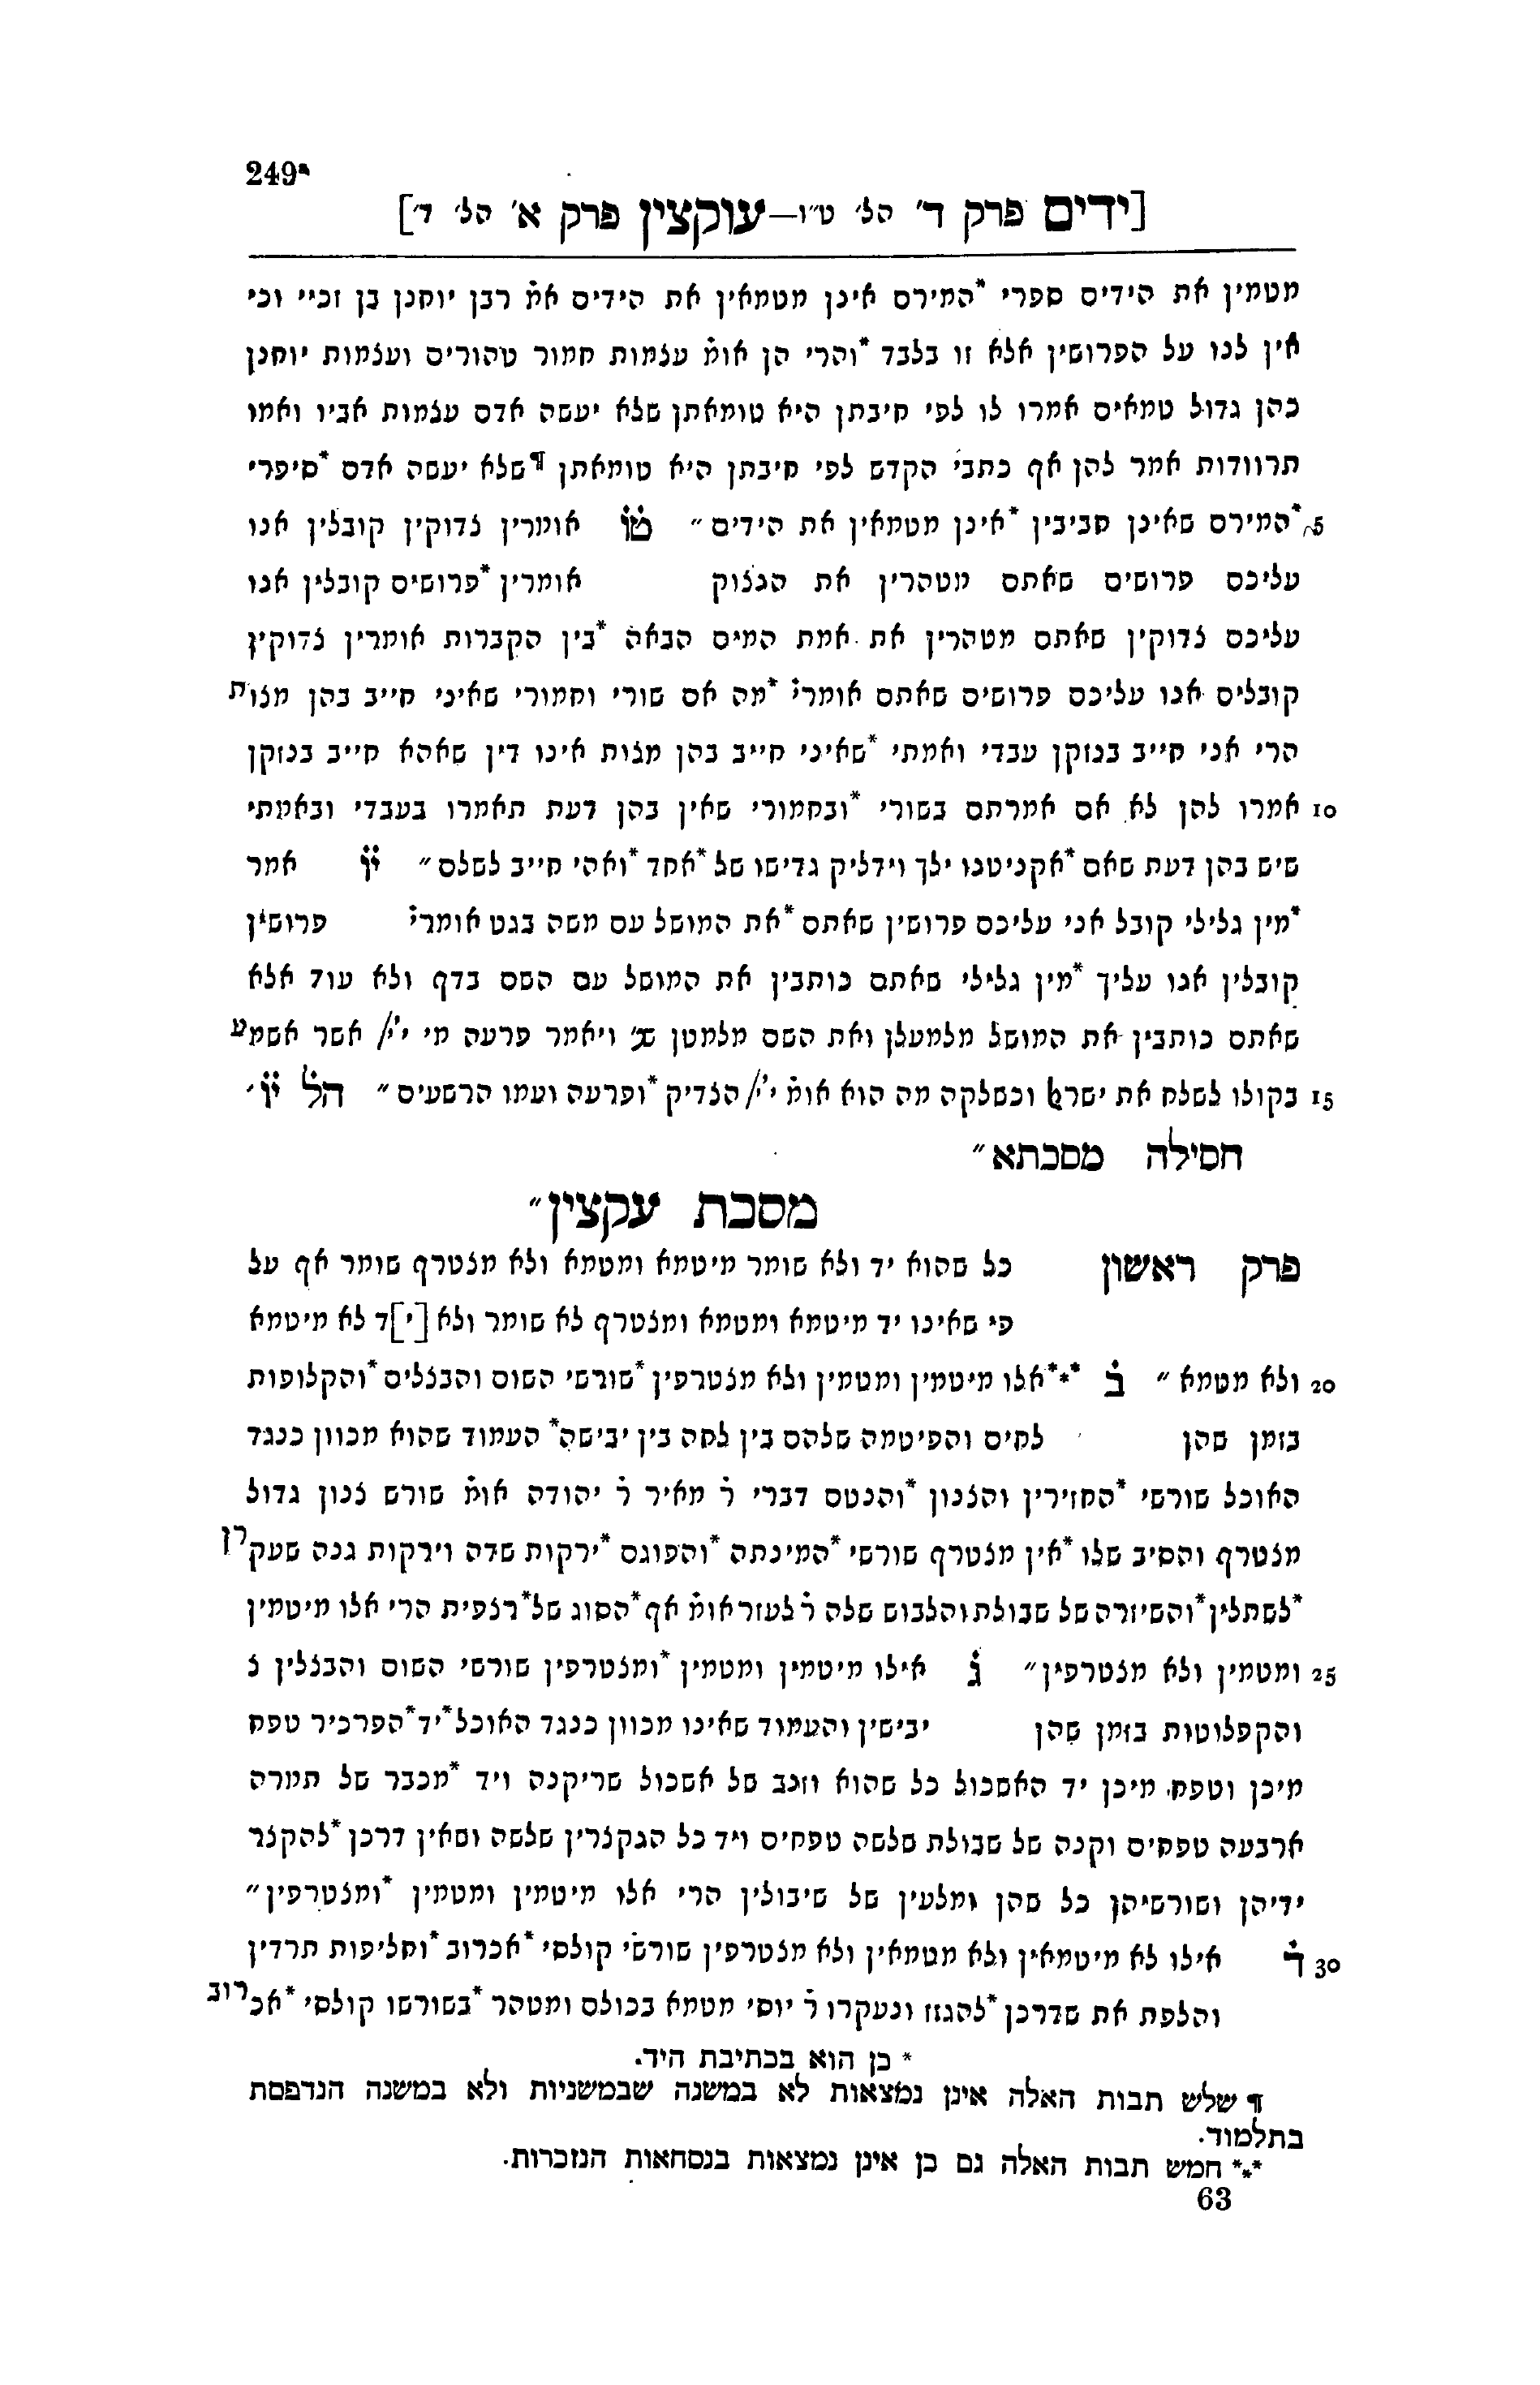 249ª
[ידים פרק ד' הל' ט״ו—עוקצין פרק א' הל' ד']
מטמין את הידים ספרי *המירם אינן מטמאין את הידים אמ̇ רבן יוחנן בן זכיי וכי
אין לנו על הפרושין אלא זו בלבד *והרי הן אומ̇ עצמות חמור טהורים ועצמות יוחנן
כהן גדול טמאים אמרו לו לפי חיבתן היא טומאתן שלא יעשה אדם עצמות אביו ואמו
תרוודות אמר להן אף כתבי הקדש לפי חיבתן היא טומאתן ¶שלא יעשה אדם *סיפרי
5 *המירם שאינן חביבין *אינן מטמאין את הידים״ ט̇ו̇ אומרין צדוקין קובלין אנו
עליכם פרושים שאתם מטהרין את הנצוק אומרין *פרושים קובלין אנו
עליכם צדוקין שאתם מטהרין את אמת המים הבאה *בין הקברות אומרין צדוקין
קובלים אנו עליכם פרושים שאתם אומרי̇ *מה אם שורי וחמורי שאיני חייב בהן מצות
הרי אני חייב בנזקן עבדי ואמתי *שאיני חייב בהן מצות אינו דין שאהא חייב בנזקן
10 אמרו להן לא אם אמרתם בשורי *ובחמורי שאין בהן דעת תאמרו בעבדי ובאמתי
שיש בהן דעת שאם *אקניטנו ילך וידליק גדישו של *אחד *ואהי חייב לשלם״ י̇ו̇ אמר
*מין גלילי קובל אני עליכם פרושין שאתם *את המושל עם משה בגט אומרי̇ פרושין
קובלין אנו עליך *מין גלילי שאתם כותבין את המושל עם השם בדף ולא עוד אלא
שאתם כותבין את המושל מלמעלן ואת השם מלמטן שנ̇ ויאמר פרעה מי י̇י̇/ אשר אשמע
15 בקולו לשלח את ישראל וכשלקה מה הוא אומ̇ י̇י̇/ הצדיק *ופרעה ועמו הרשעים״ הל̇ י̇ו̇׳
חסילה מסכתא״
מסכת עקצין״
פרק ראשון כל שהוא יד ולא שומר מיטמא ומטמא ולא מצטרף שומר אף על
פי שאינו יד מיטמא ומטמא ומצטרף לא שומר ולא [י]ד לא מיטמא
20 ולא מטמא״ ב̇ ***אלו מיטמין ומטמין ולא מצטרפין *שורשי השום והבצלים *והקלופות
בזמן שהן לחים והפיטמה שלהם בין לחה בין יבישה *העמוד שהוא מכוון כנגד
האוכל שורשי *החזירין והצנון *והנטס דברי ר̇ מאיר ר̇ יהודה אומ̇ שורש צנון גדול
מצטרף והסיב שלו *אין מצטרף שורשי *המינתה *והפוגם *ירקות שדה וירקות גנה שעקרן
*לשתלין *והשיזרה של שבולת והלבוש שלה ר̇ לעזר אומ̇ אף *הסוג של *רצפית הרי אלו מיטמין
25 ומטמין ולא מצטרפין״ ג̇ אילו מיטמין ומטמין *ומצטרפין שורשי השום והבצלין צ
והקפלוטות בזמן שהן יבישין והעמוד שאינו מכוון כנגד האוכל *יד *הפרכיר טפח
מיכן וטפח מיכן יד האשכול כל שהוא וזנב של אשכול שריקנה ויד *מכבר של תמרה
ארבעה טפחים וקנה של שבולת שלשה טפחים ויד כל הנקצרין שלשה ושאין דרכן *להקצר
ידיהן ושורשיהן כל שהן ומלעין של שיבולין הרי אלו מיטמין ומטמין *ומצטרפין״
30 ד̇ אילו לא מיטמאין ולא מטמאין ולא מצטרפין שורשי קולסי *אכרוב *וחליפות תרדין
והלפת את שדרכן *להגזז ונעקרו ר̇ יוסי מטמא בכולם ומטהר *בשורשו קולסי *אכרוב
* כן הוא בכתיבת היד.
¶ שלש תבות האלה אינן נמצאות לא במשנה שבמשניות ולא במשנה הנדפסת
בתלמוד.
*** חמש תבות האלה גם כן אינן נמצאות בנסחאות הנזכרות.
63